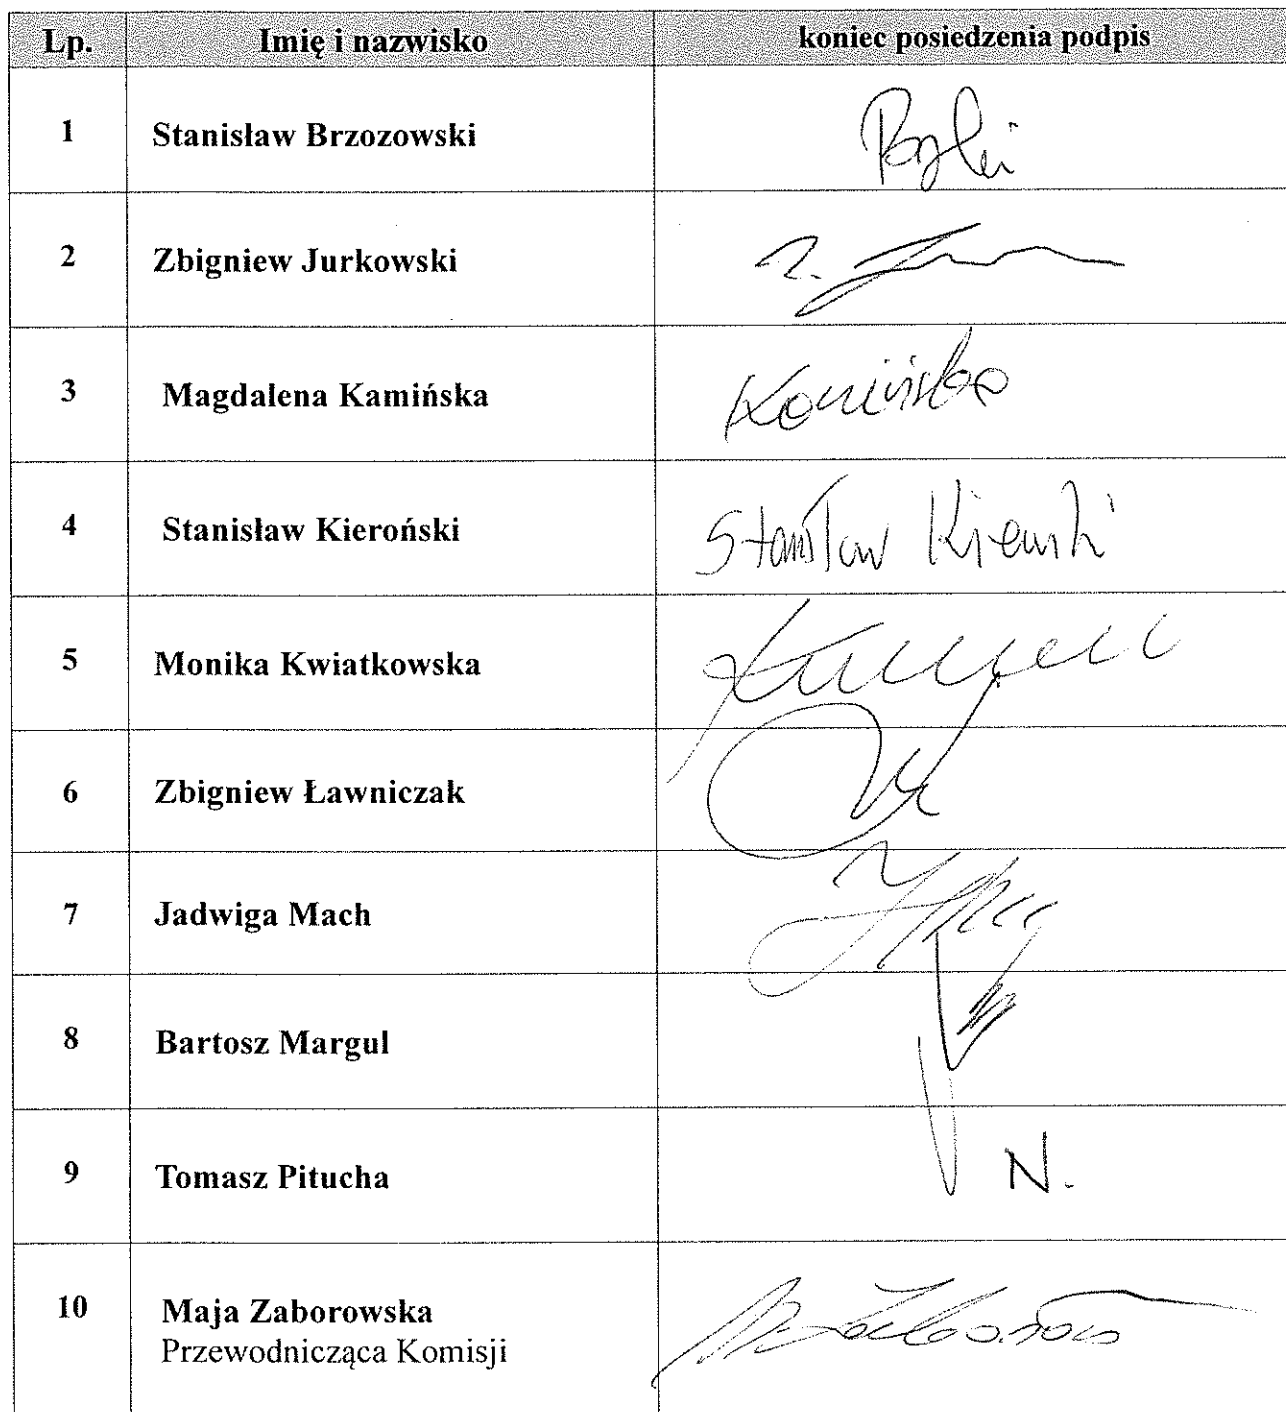 Lp. Imię i nazwisko koniec posiedzenia podpis
1 Stanisław Brzozowski
2 Zbigniew Jurkowski Z.
3 Magdalena Kamińska Kamińska
4 Stanisław Kieroński Stanisław
5 Monika Kwiatkowska
6 Zbigniew Ławniczak
7 Jadwiga Mach
8 Bartosz Margul
9 Tomasz Pitucha N.
10 Maja Zaborowska
Przewodnicząca Komisji